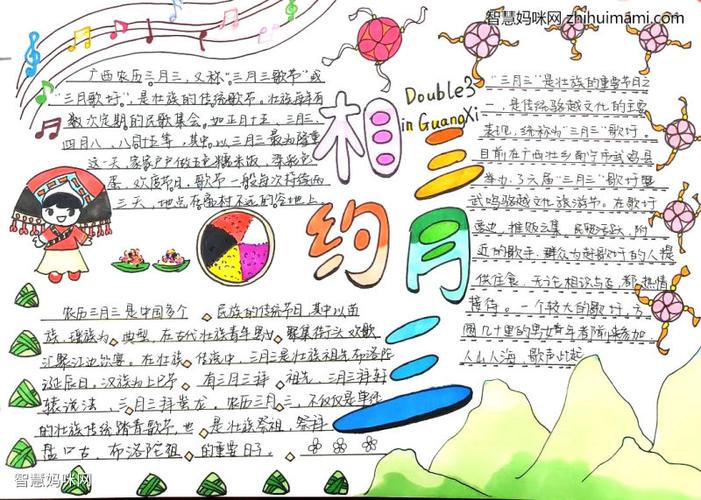 智慧妈咪网 zhihuimami.com
广西农历三月三,又称"三月三歌节"或
"三月歌圩",是壮族的传统歌节。壮族每有
数次定期的民歌集会。如正月十五、三月三
四月八、八月十五等,其中以三月三最为隆重
这一天,家家户户做五色糯米饭,染彩色
蛋,欢度节日,歌节一般每次持续两
三天,地点在离村不远的空地上
相约
三月三
Double3
in GuangXi
"三月三"是壮族的重要节日之
一,是传统骆越文化的主要
表现,统称为"三月三"歌圩,
目前在广西壮乡南宁市武鸣县
举办了六届"三月三"歌圩暨
武鸣骆越文化旅游节。在歌圩
旁边,摊贩云集,民贸活跃,附
近的歌手,群众为赶歌圩的人提
供住食,无论相识与否,都热情
接待。一个较大的歌圩,方
圆几十里的男女青年都前来参加,
人山人海,歌声此起
农历三月三是中国多个民族的传统节日,其中以苗
族、瑶族为典型,在古代壮族青年男女聚集街头欢歌
汇聚江边饮宴。在壮族传底中,三月三是壮族祖先布洛陀
诞辰日,汉族为上巳节有三月三拜祖先,三月三拜轩
辕说法、三月三拜岽龙,农历三月三,不仅仅是单纯
的壮族传统踏青歌节,也是壮族祭祖,祭拜
盘口古、布洛陀祖的重要日子。
智慧妈咪网